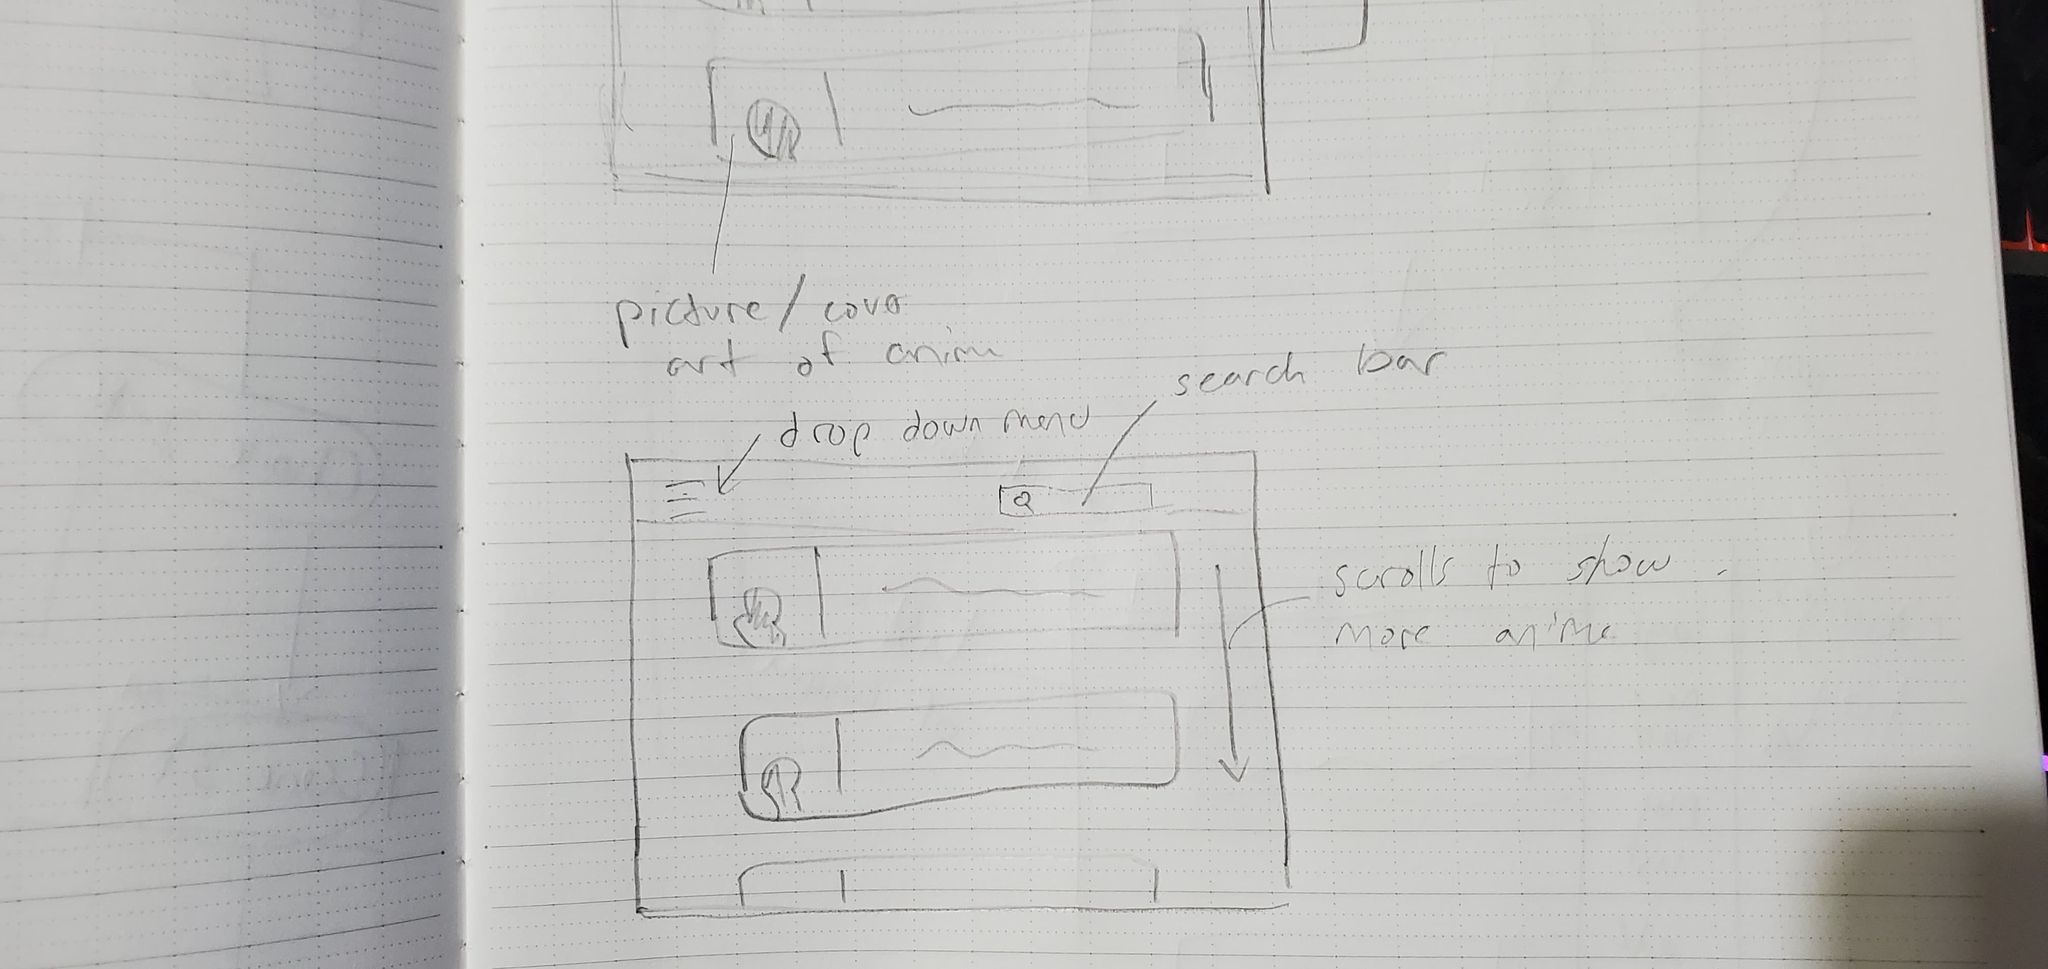 picture / cover
art of anime
search bar
drop down menu
scrolls to show
more anime